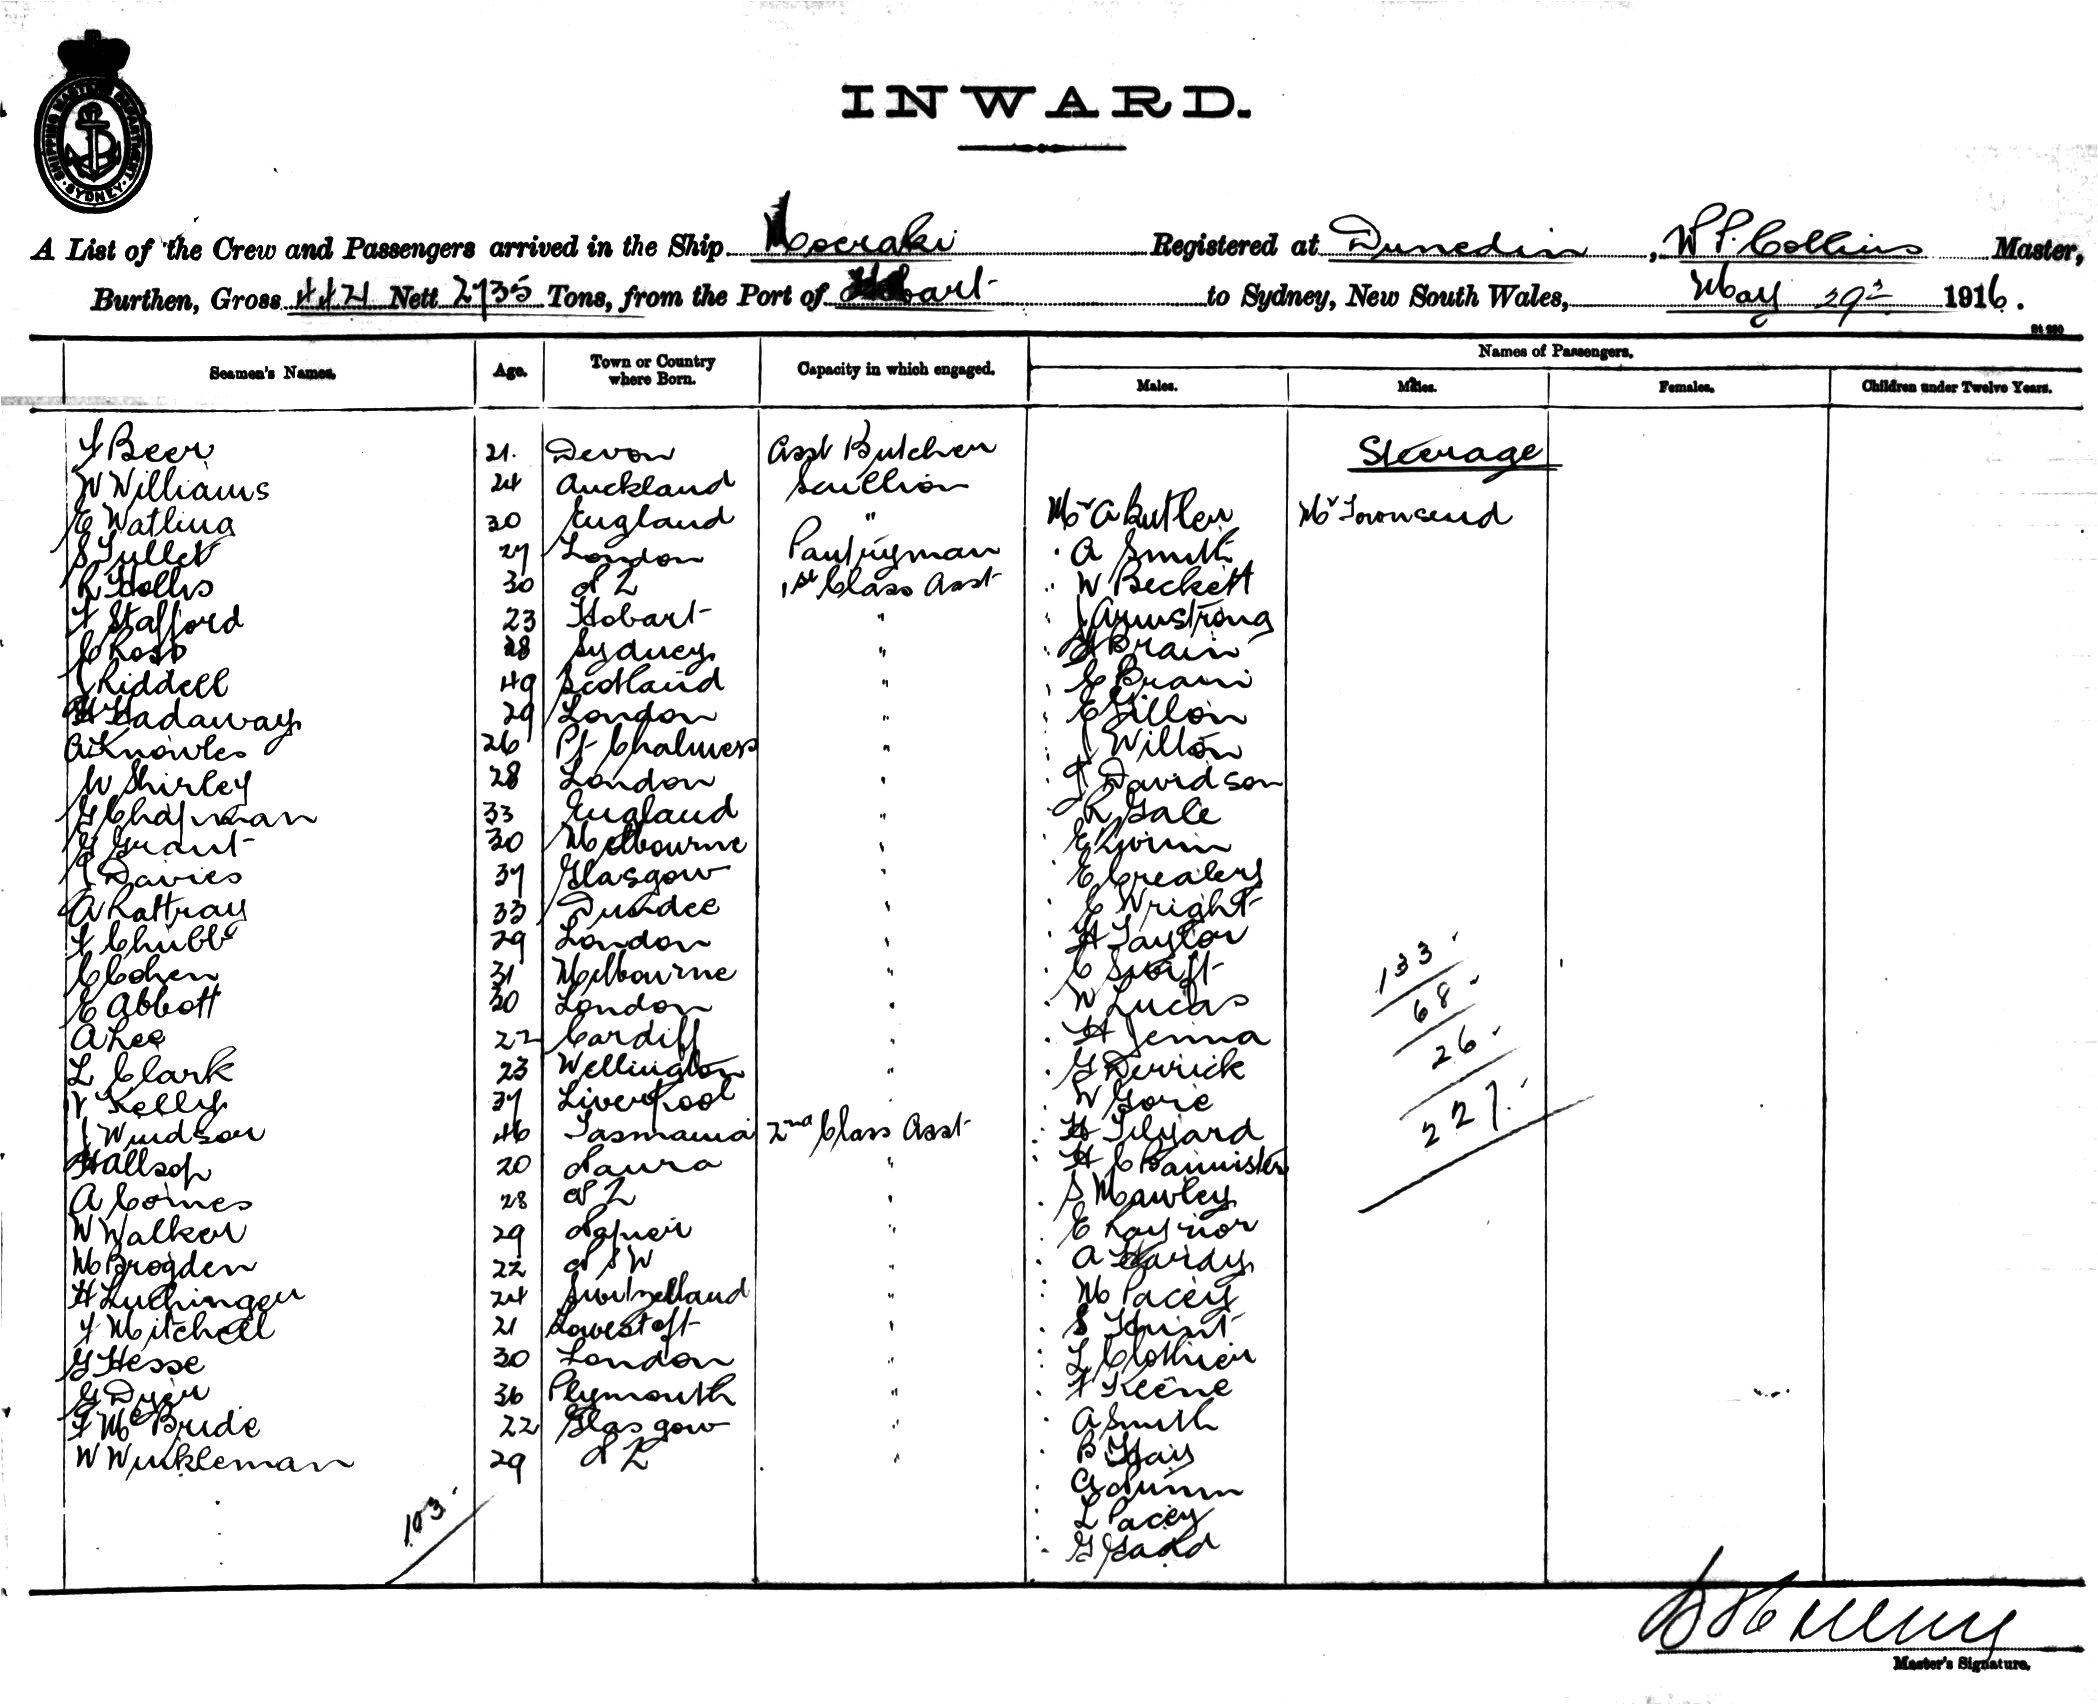 SHIPPING MASTERS DEPARTMENT SYDNEY
INWARD.
A List of the Crew and Passengers arrived in the Ship Moeraki Registered at Dunedin, W P. Collins Master,
Burthen, Gross 4421 Nett 2735 Tons, from the Port of Hobart to Sydney, New South Wales, May 29th 1916.
Seamen's Names. Age. Town or Country where Born. Capacity in which engaged. Names of Passengers.
Males. Males. Females. Children under Twelve Years.
F Beer 21. Devon Asst Butcher Steerage
W Williams 24 Auckland Scullion
E Watling 30 England " Mr A Butler Mr Townsend
S Tullet 27 London Pantryman " A Smith
R Hollis 30 N Z 1st Class Asst " W Beckett
F Stafford 23 Hobart " " J Armstrong
C Ross 28 Sydney " " H Brain
J Riddell 49 Scotland " " E Brain
H Hadaway 29 London " " E Gillon
A Knowles 26 Pt Chalmers " " J Wilton
W Shirley 28 London " " J Davidson
G Chapman 33 England " " R Gale
G Grant 30 Melbourne " " E Quinn
J Davies 37 Glasgow " " E Crealey
A Rattray 33 Dundee " " C Wright
F Chubb 29 London " " H Taylor
C Cohen 31 Melbourne " " C Swift 133
E Abbott 30 London " " W Lucas 68
A Lee 22 Cardiff " " H Jenna 26
L Clark 23 Wellington " " G Derrick
V Kelly 37 Liverpool " " W Gore 227
J Windson 46 Tasmania 2nd Class Asst " H Tilyard
H Allsop 20 Naura " " H C Bannister
A Comes 28 N Z " " S Mawley
W Walker 29 Napier " " E Raynor
M Brogden 22 N S W " " A Hardy
H Luchinger 24 Switzelland " " M Pacey
F Mitchell 21 Lowestoft " " S Hunt
G Hesse 30 London " " L Clothier
G Dyer 36 Plymouth " " F Keene
F McBride 22 Glasgow " " A Smith
W Winkleman 29 N Z " " B Hay
" A Nunn
103 " L Pacey
" G Gadd
Master's Signature.